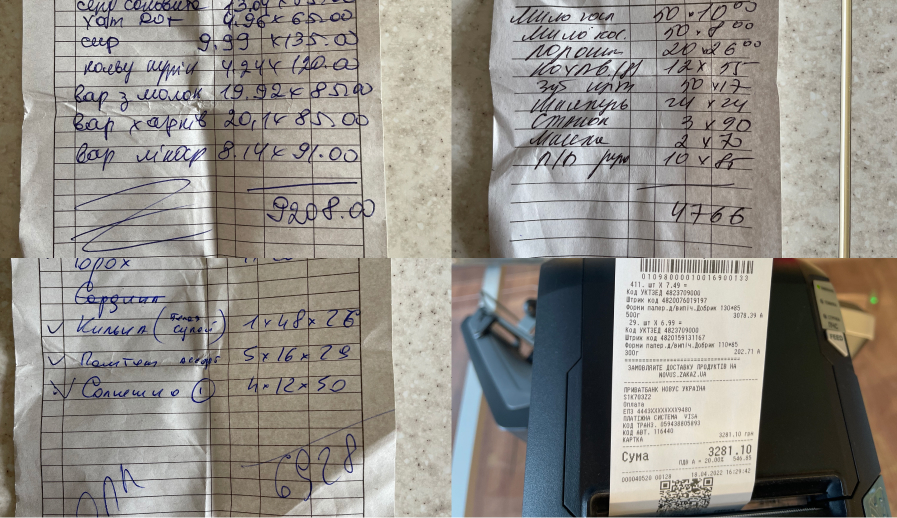 13.04 ×
4.96 × 65.00
сир 9.99 × 135.00
4.244 × 120.00
вар з молок 19.92 × 85.00
вар 20,14 85.00
вар лікар 8.14 × 91.00
9208.00
Мило 50 × 10 00
Мило 50 × 8 00
порошки 20 × 26 00
12 × 55
зуб 50 × 17
Шампунь 24 × 24
Станок 3 × 90
2 × 70
10 × 85
4766
горох
Сардина
Килька ( 1 × 48 × 26
Паштет 5 × 16 × 29
1 4 × 12 × 50
6928
0109800010016900133
411. шт X 7.49 =
Код УКТЗЕД 4823709000
Штрих код 4820076019197
Форми папер.д/випіч.Добрик 130*85
500г 3078.39 А
29. шт X 6.99 =
Код УКТЗЕД 4823709000
Штрих код 4820159131167
Форми папер.д/випіч.Добрик 110*65
300г 202.71 А
ЗАМОВЛЯЙТЕ ДОСТАВКУ ПРОДУКТІВ НА
NOVUS.ZAKAZ.UA
ПРИВАТБАНК НОВУС УКРАЇНА
S1K70322
Оплата
ЕПЗ 4443XXXXXXXX9480
ПЛАТІЖНА СИСТЕМА VISA
КОД ТРАНЗ. 059438805893
КОД АВТ. 116440
КАРТКА 3281.10 грн
Сума 3281.10
ПДВ А = 20.00% 546.85
000040520 00128 18.04.2022 16:29:42
FEED